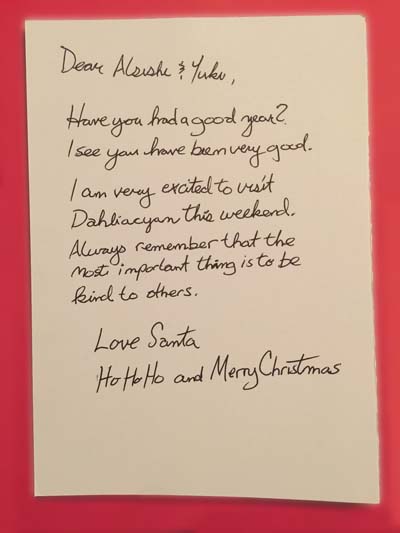 Dear Alsushi & Yuku,
Have you had a good year?
I see you have been very good.
I am very excited to visit
Dahliacyan this weekend.
Always remember that the
most important thing is to be
kind to others.
Love Santa
Ho Ho Ho and Merry Christmas